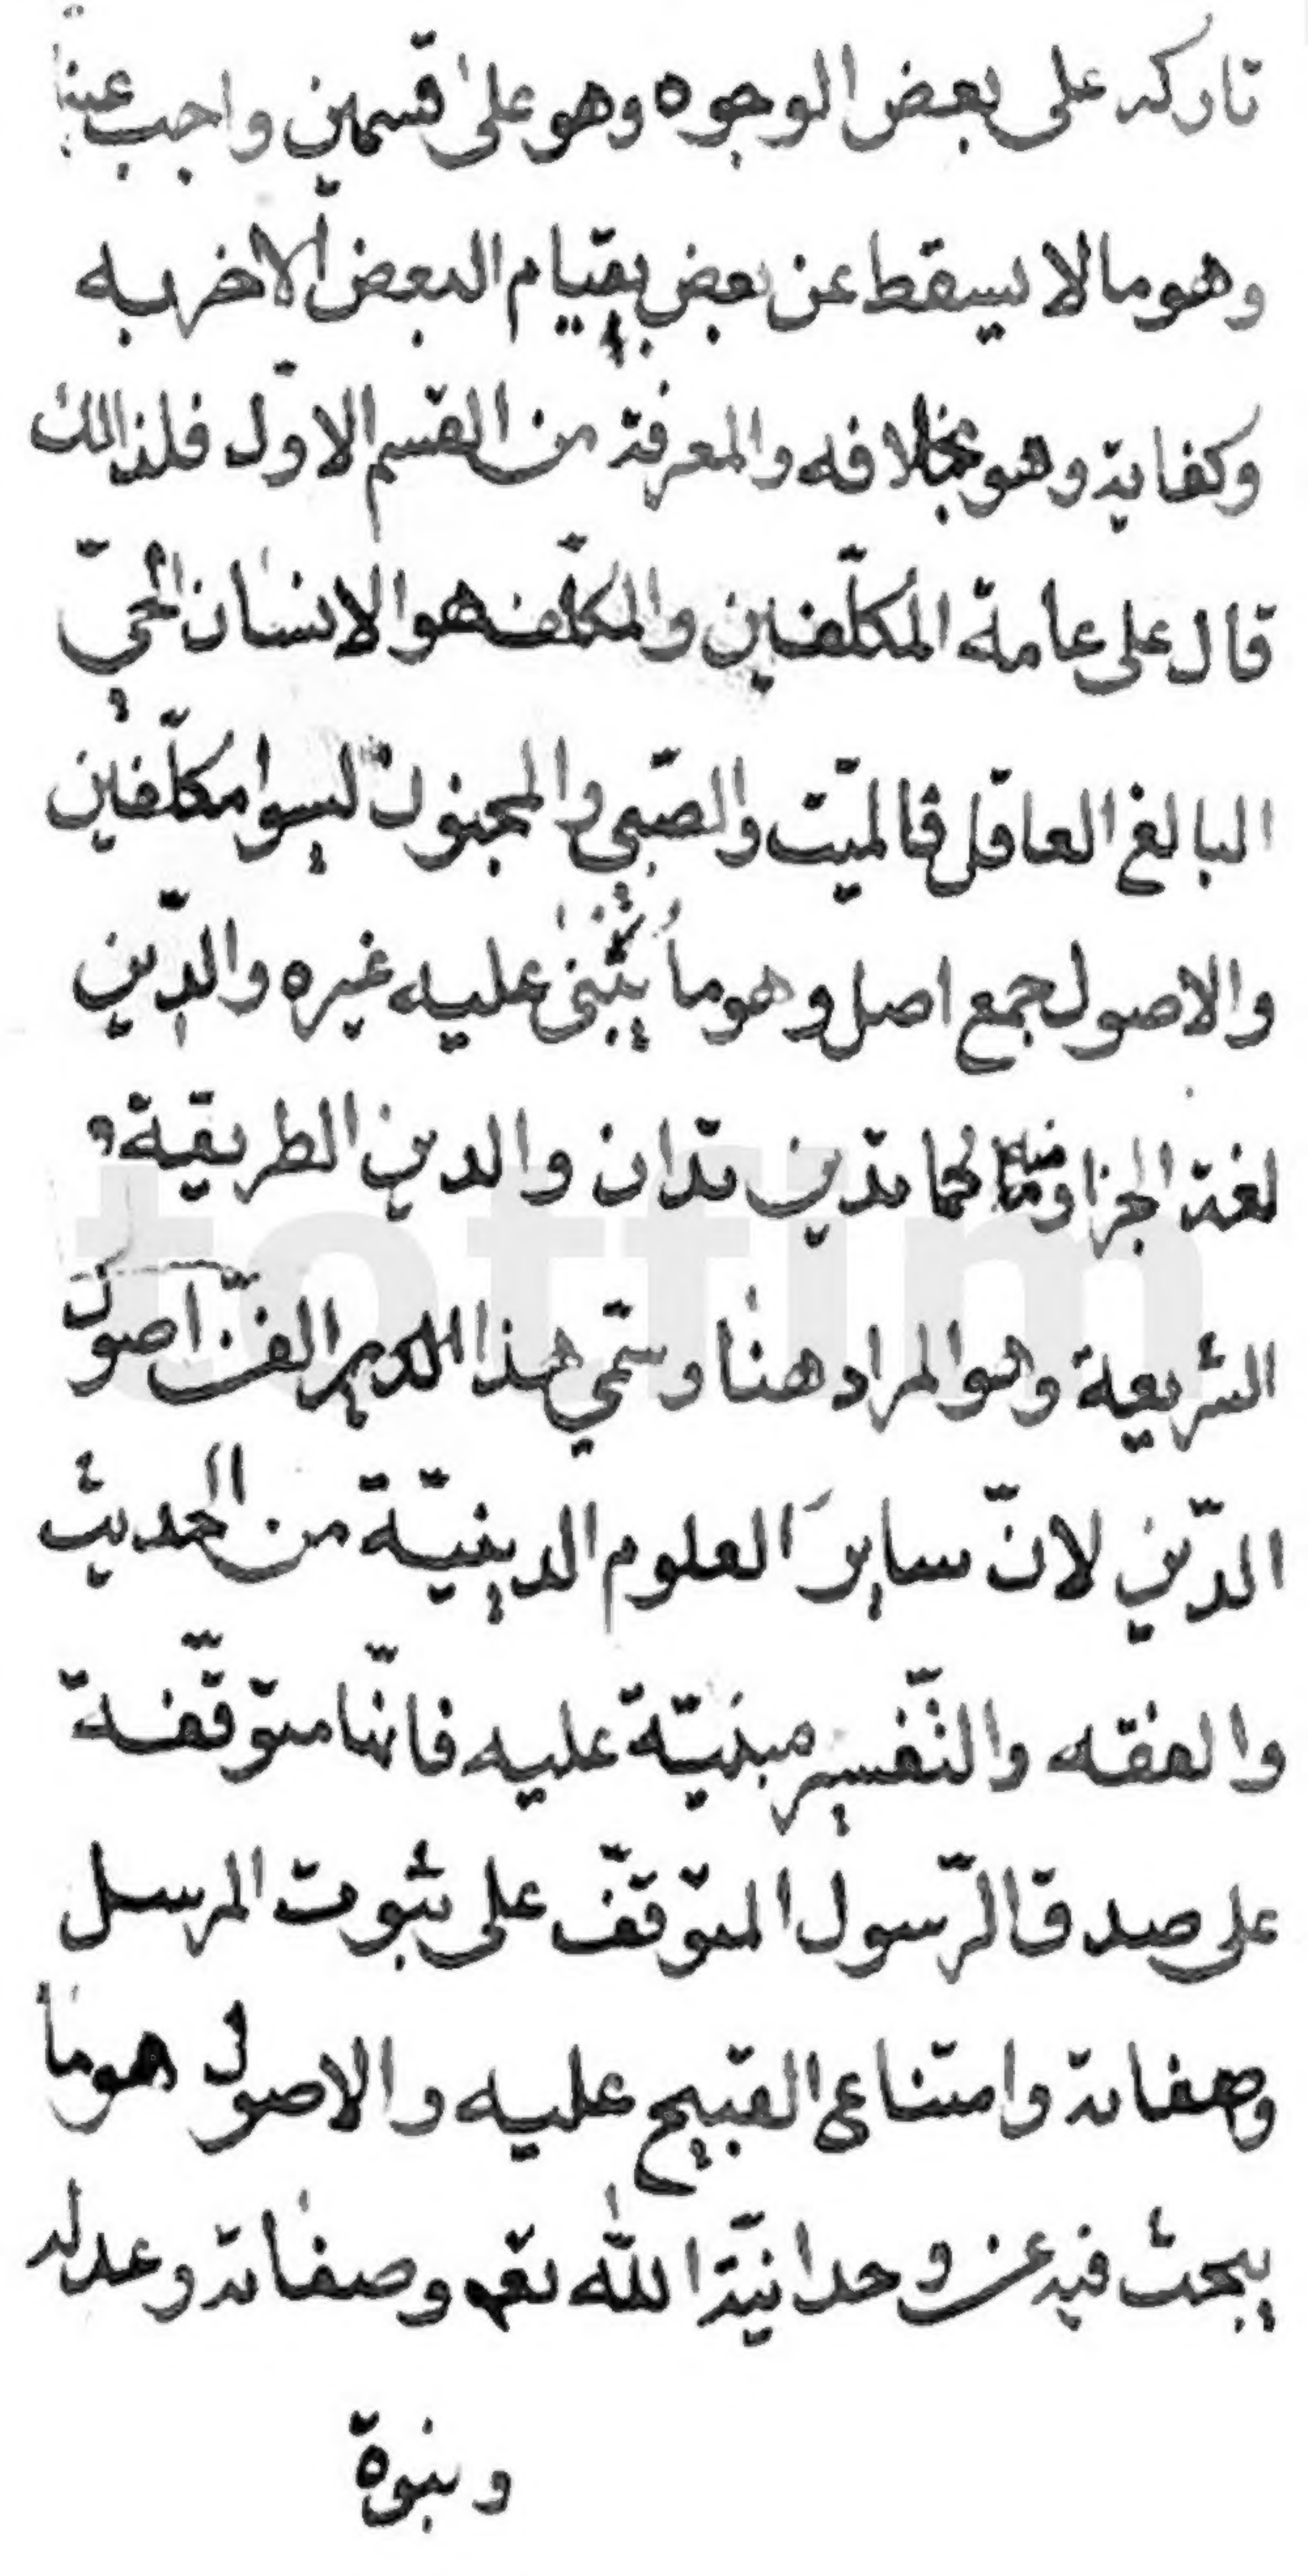 تاركه على بعض الوجوه وهو على قسمين واجب عينا
وهو مالا يسقط عن بعض بقيام البعض الاخر به
وكفاية وهو بخلافه والمعرفة من القسم الاوّل فلذالك
قال على عامة المكلّفين والمكلّف هو الانسان الحيّ
البالغ العاقل فالميّت والصّبي والمجنون ليسوا مكلّفين
والاصول جمع اصل وهو ما يبتنى عليه غيره والدّين
لغة الجزا ومنه كما تدين تدان والدين الطريقة و
الشريعة وهو المراد هنا وسمّي هذا الفنّ اصول
الدّين لانّ ساير العلوم الدينيّة من الحديث
والفقه والتّفسير مبنيّة عليه فانّها متوقّفة
على صدق الرّسول المتوقّف على ثبوت المرسل
وصفاته وامتناع القبيح عليه والاصول هو ما
يبحث فيه عن وحدانيّة الله تعـ وصفاته وعدله
ونبوة
totfim